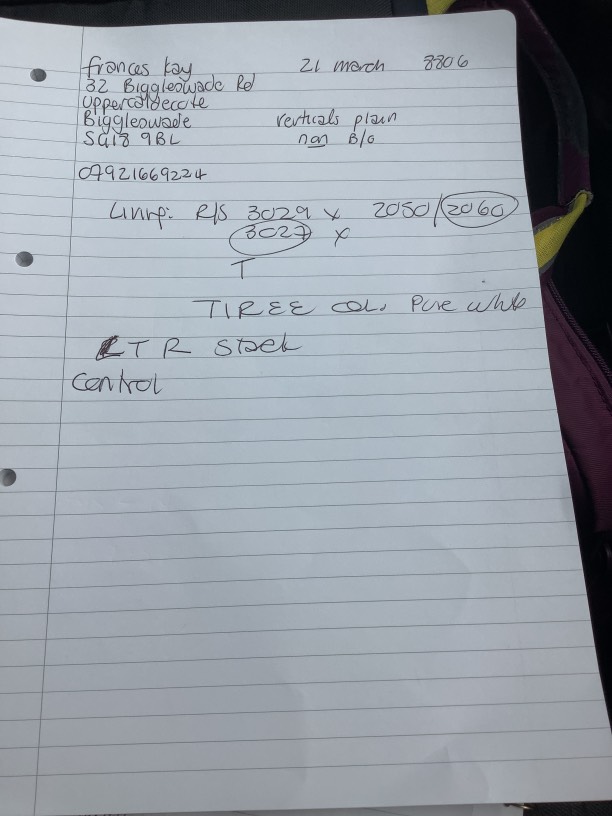 Frances Kay 21 march 8806
32 Biggleswade Rd
uppercaldecote
Biggleswade verticals plain
SG18 9BL non B/o
07921669224
Living: R/S 3029 x 2050/2060
3027 x
T
TIREE col. Pure white
LTR stack
control